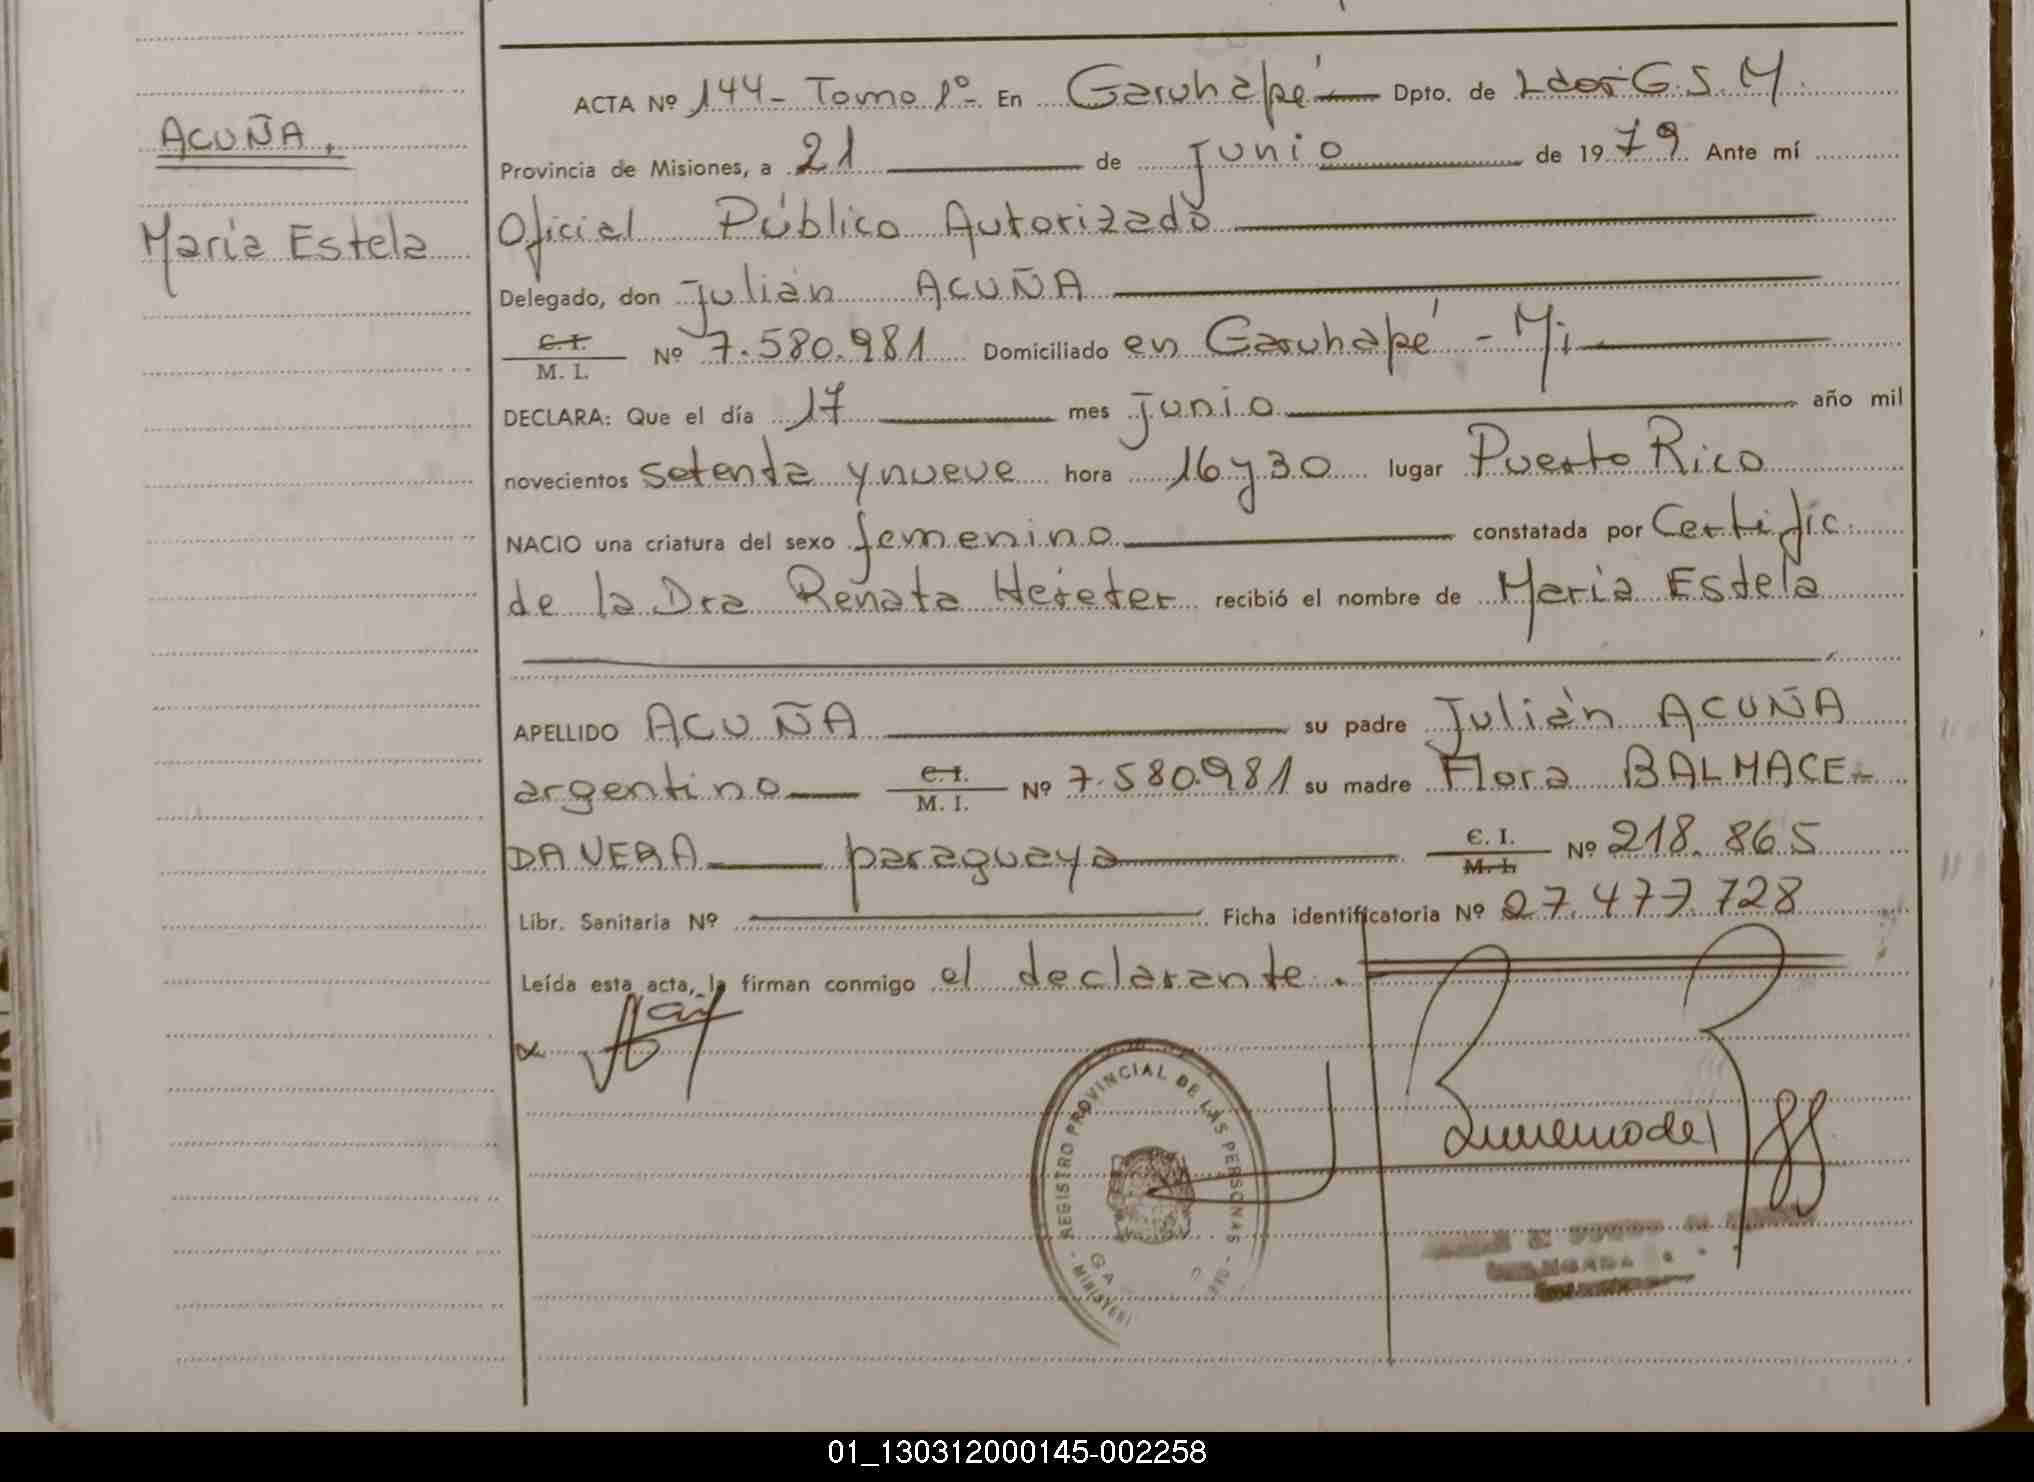 ACUÑA.
María Estela
ACTA Nº 144- Tomo 1º- En Garuhapé Dpto. de Ldor G. S. M.
Provincia de Misiones, a 21 de junio de 1979 Ante mí
Oficial Público Autorizado
Delegado, don Julián ACUÑA
C. I. / M. I. Nº 7.580.981 Domiciliado en Garuhapé - Mi
DECLARA: Que el día 17 mes junio año mil
novecientos setenta y nueve hora 16 y 30 lugar Puerto Rico
NACIO una criatura del sexo femenino constatada por Certific.
de la Dra Renata recibió el nombre de María Estela
APELLIDO ACUÑA su padre Julián ACUÑA
argentino C. I. / M. I. Nº 7.580.981 su madre Flora BALMACE-
DA VERA paraguaya C. I. / M. I. Nº 218.865
Libr. Sanitaria Nº Ficha identificatoria Nº 27.477.728
Leída esta acta, la firman conmigo el declarante.
REGISTRO PROVINCIAL DE LAS PERSONAS
01_130312000145-002258